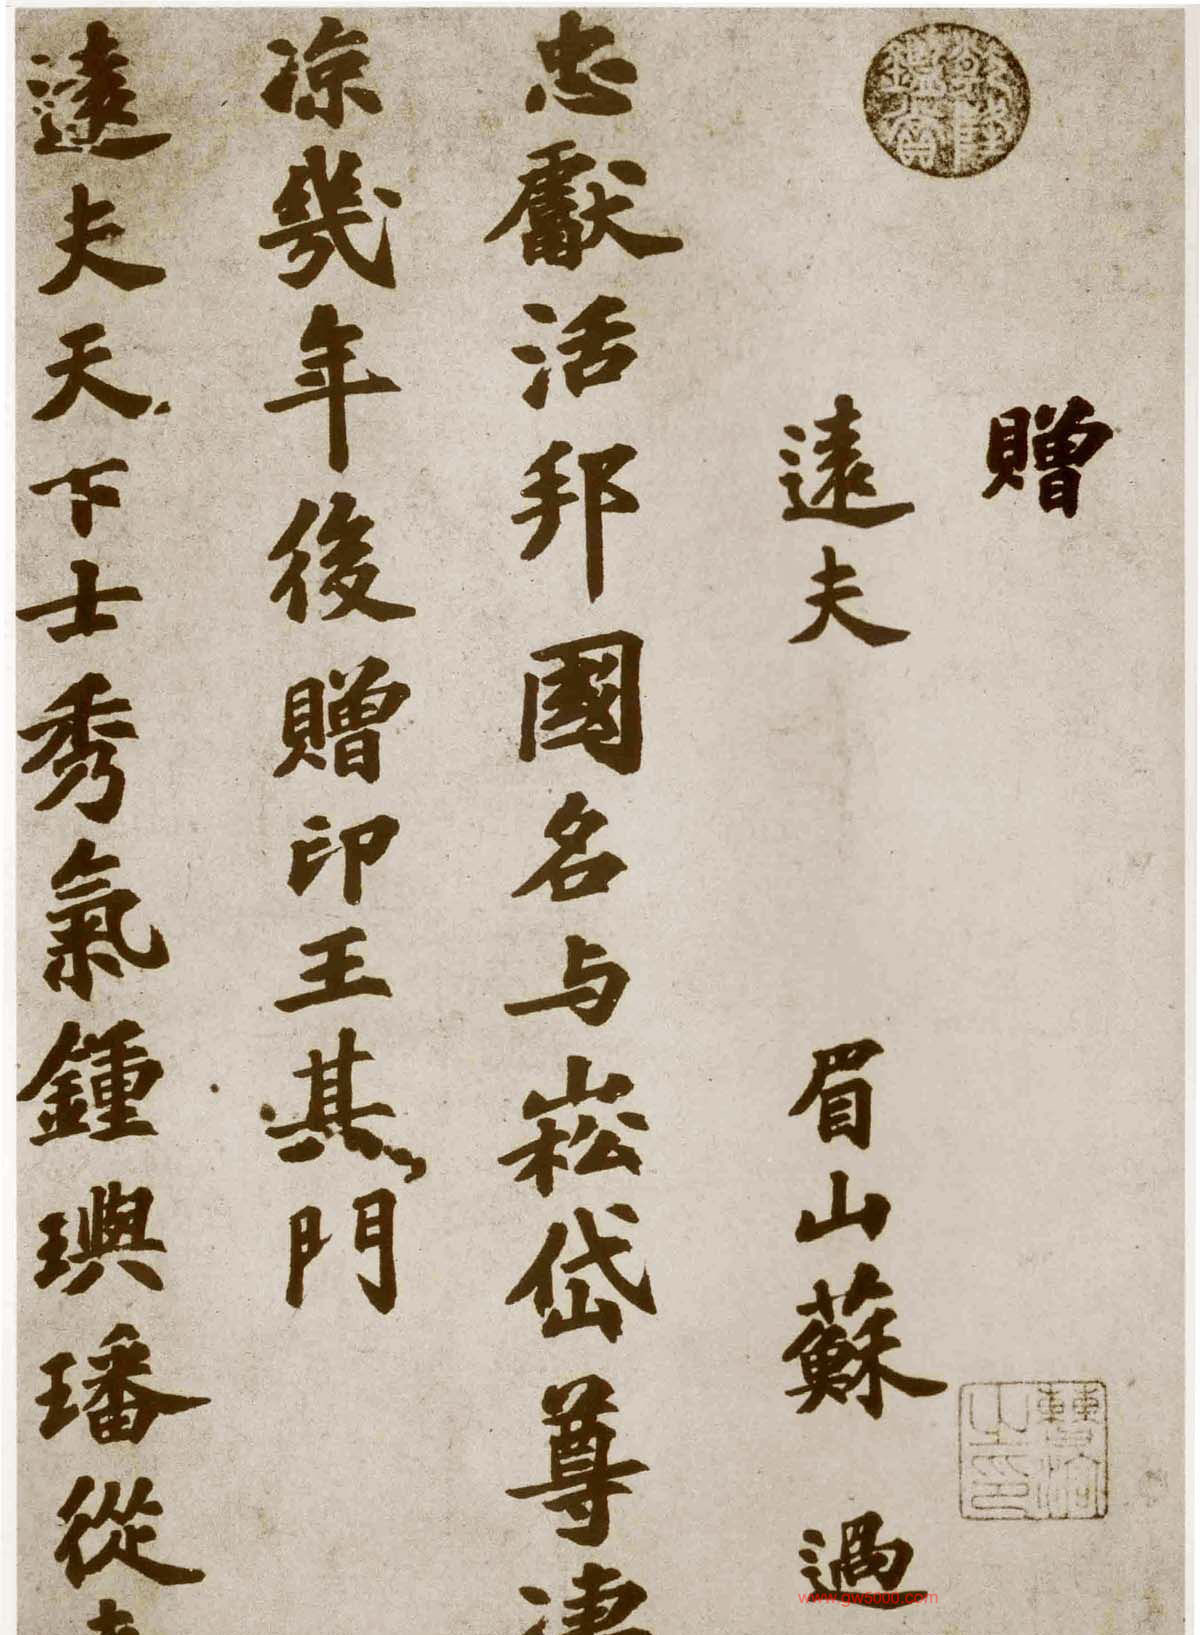 贈
遠夫
眉山蘇過
忠獻活邦國名与崧岱尊凄
凉幾年後贈印王其門
遠夫天下士秀氣鍾璵璠從
www.gw5000.com